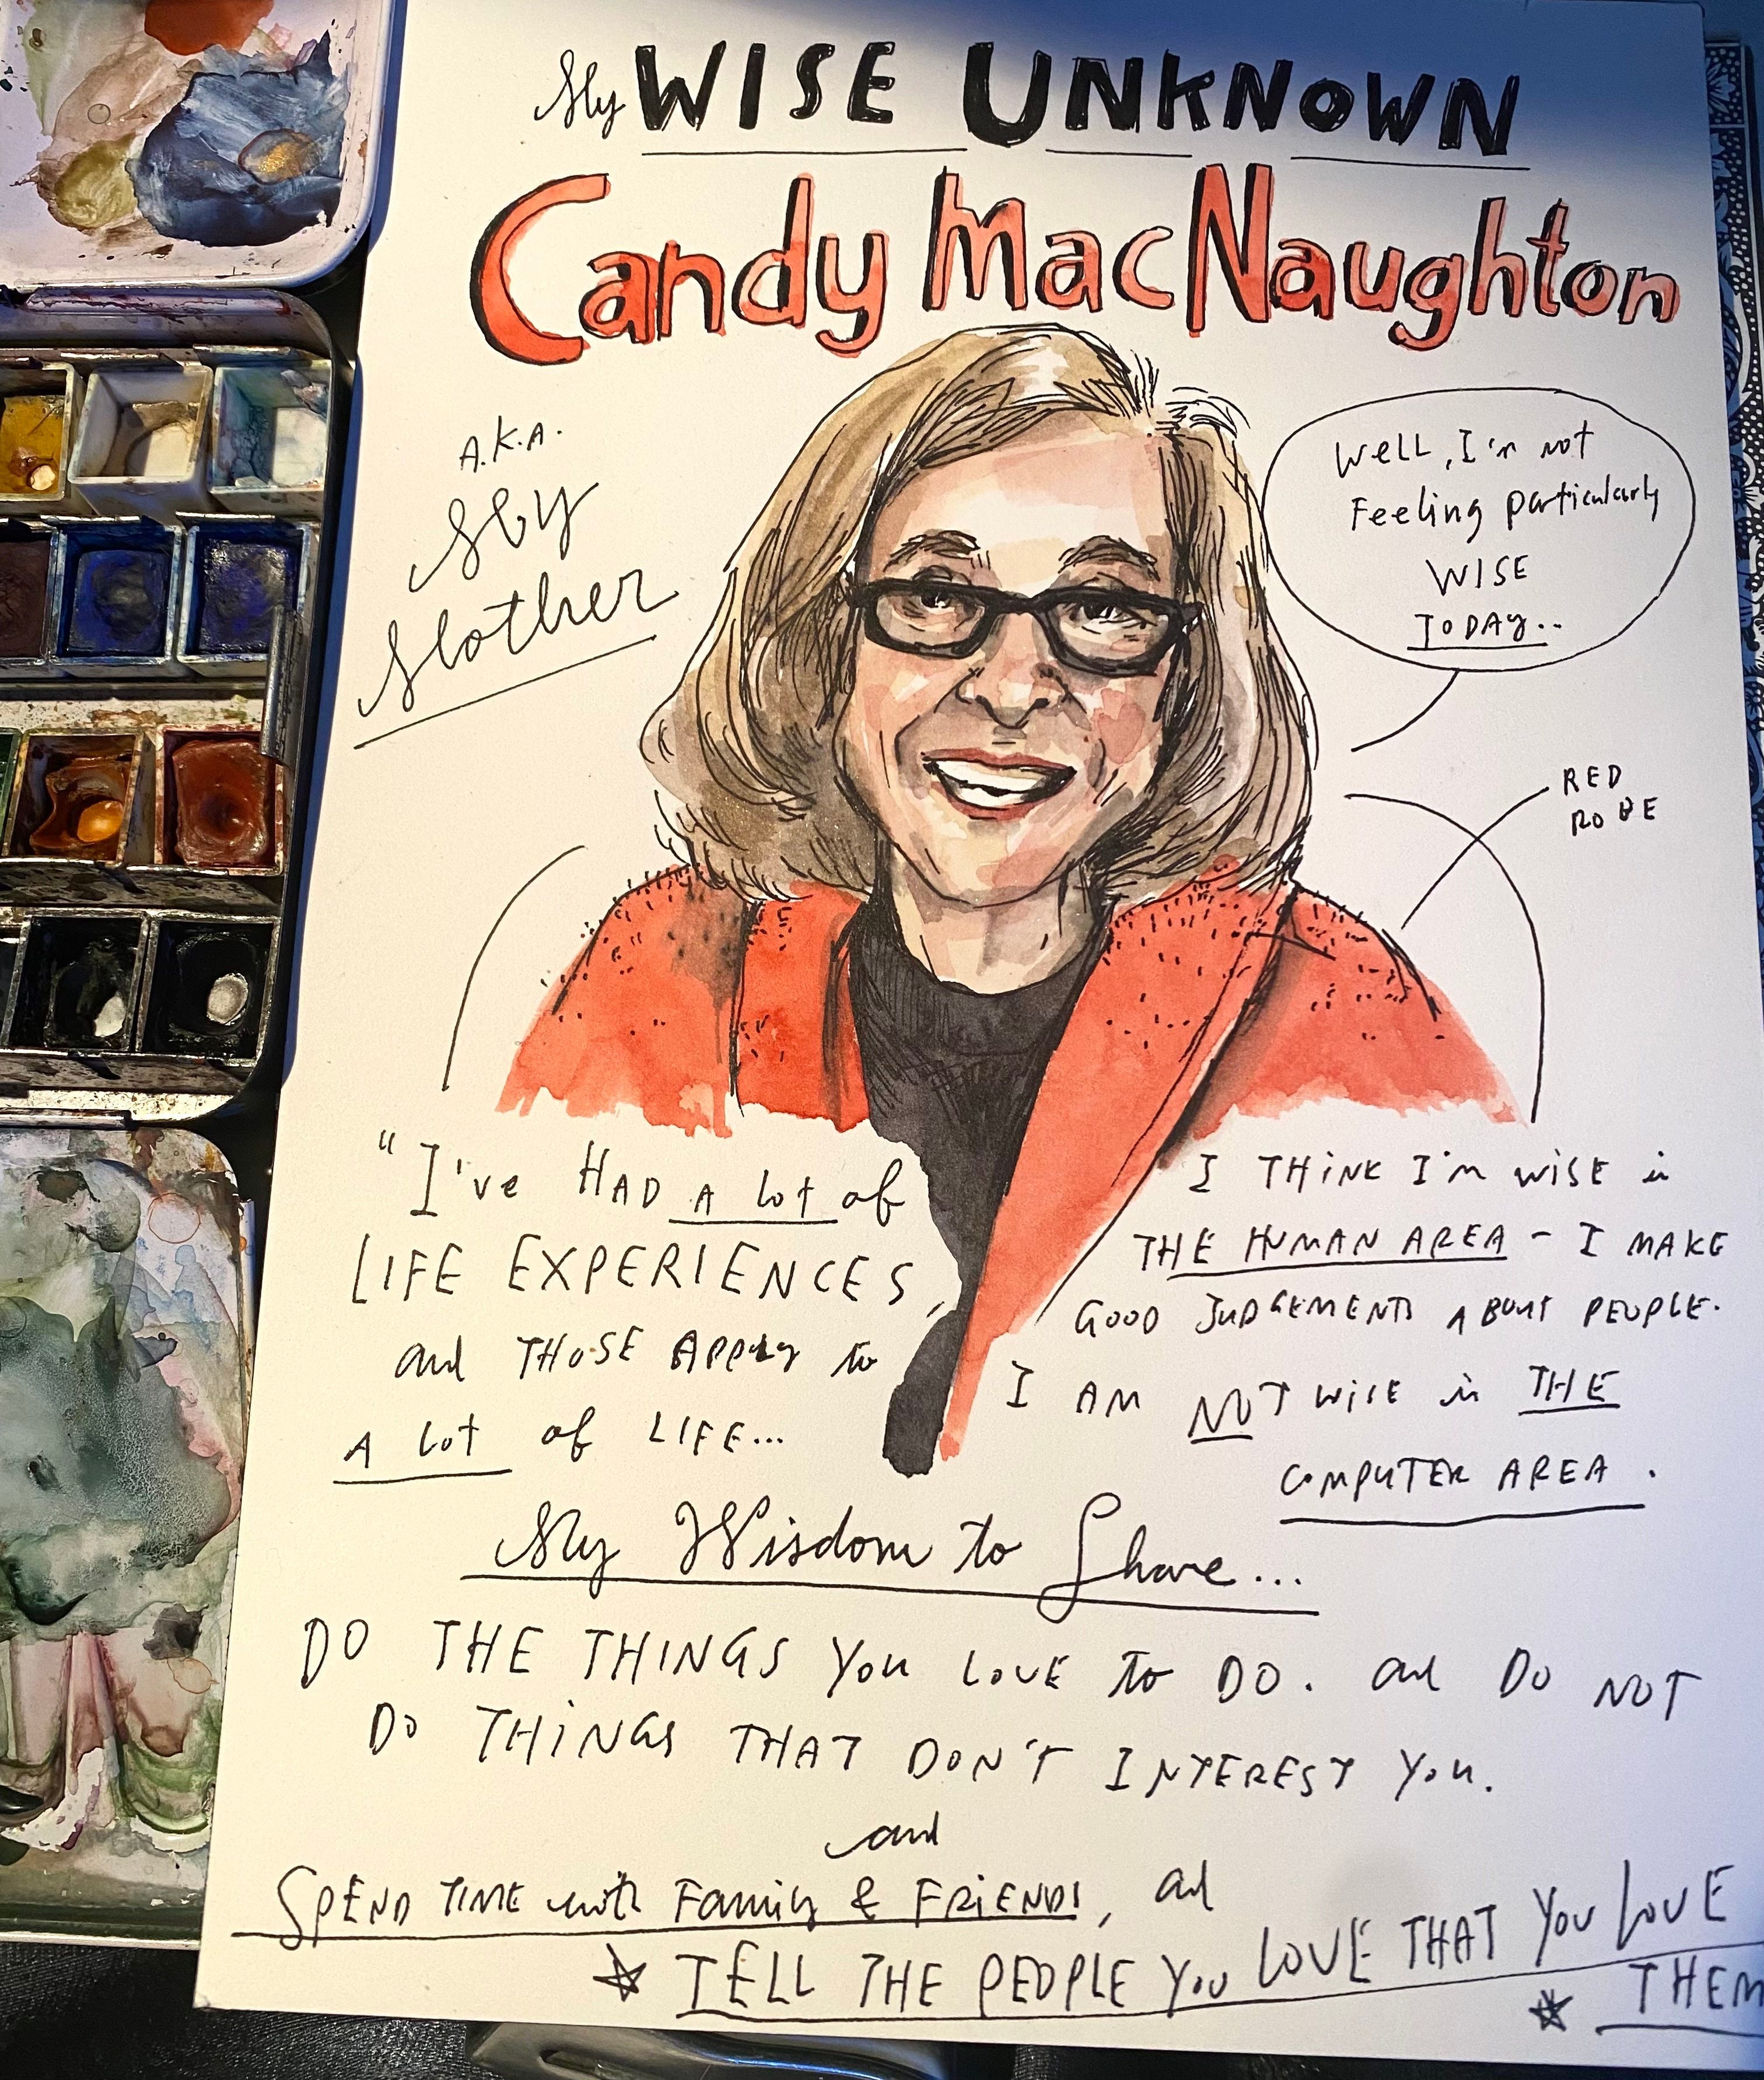 My WISE UNKNOWN
Candy MacNaughton
A.K.A.
My
Mother
Well, I'm not
Feeling particularly
WISE
TODAY..
RED
ROBE
"I've HAD A lot of
LIFE EXPERIENCES,
and THOSE APPLY to
A lot of LIFE...
I THINK I'm WISE in
THE HUMAN AREA - I MAKE
GOOD JUDGEMENTS ABOUT PEOPLE.
I AM NOT WISE in THE
COMPUTER AREA.
My Wisdom to Share...
DO THE THINGS YOU LOVE to DO. and DO NOT
DO THINGS THAT DON'T INTEREST YOU.
and
SPEND TIME with Family & FRIENDS, and
TELL THE PEOPLE YOU LOVE THAT YOU LOVE
THEM